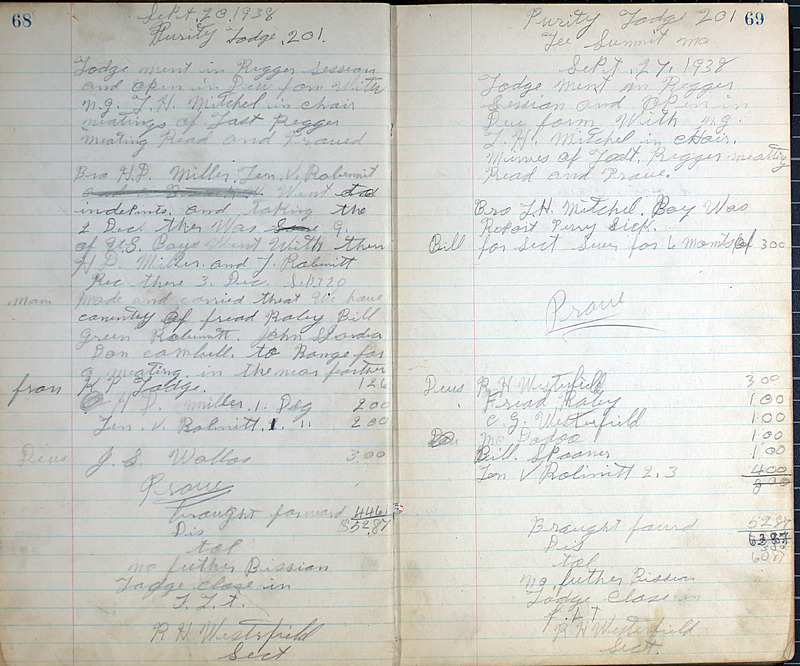 68
Sept. 20. 1938
Purity Lodge. 201.
Lodge ment in Regger Session
and open in Due form With
n.g. T.H. Mitchel in chair
meatings of Last Regger
meating Read and Praued
Bro H.D. Miller. Len. V. Rolimitt
Went
indepints. and taking the
2 Dec. ther Was 9.
of I.L.S. Boys Went With them
H D. Miller. and L. Rolimitt
Rec there 3. Dec. Sept 20
mam made and carried that We have
comenty of fread Raley Bill
Green Rolimitt. John
Don cambell. to Range for
a meating. in the near further
from K P Lodge. 126
H D. Miller. 1. Deg 2 00
Len. V. Rolmitt. 1. 11 2 00
Deus J. S. Wallas 3.00
Praue
braught forward 446
Dis $52.87
tol
no futher Bission
Lodge Close in
F. L. T.
R H Westerfield
Sect
Purity Lodge 201 69
Lee Summit mo
Sept. 27. 1938
Lodge ment in Regger
Session and Open in
Due form With n.g.
T. H. Mitchel in Chair.
Minues of Last. Regger meatting
Read and Praue.
Bro T.H. Mitchel. Boy Was
Report Verry Sick.
Bill for Sect Siver for 6 Momts of 3 00
Praue
Deus R H Westerfield 3 00
Fread Raley 1 00
C. G. Westerfield 1 00
Mc Padoo 1 00
Bill. Spooner 1 00
Len V Rolimitt 2. 3 4 00
Braught faurd 52 87
Dis
tol
no futher Bission
Lodge Close in
F. L. T
R H Westerfield
Sect.